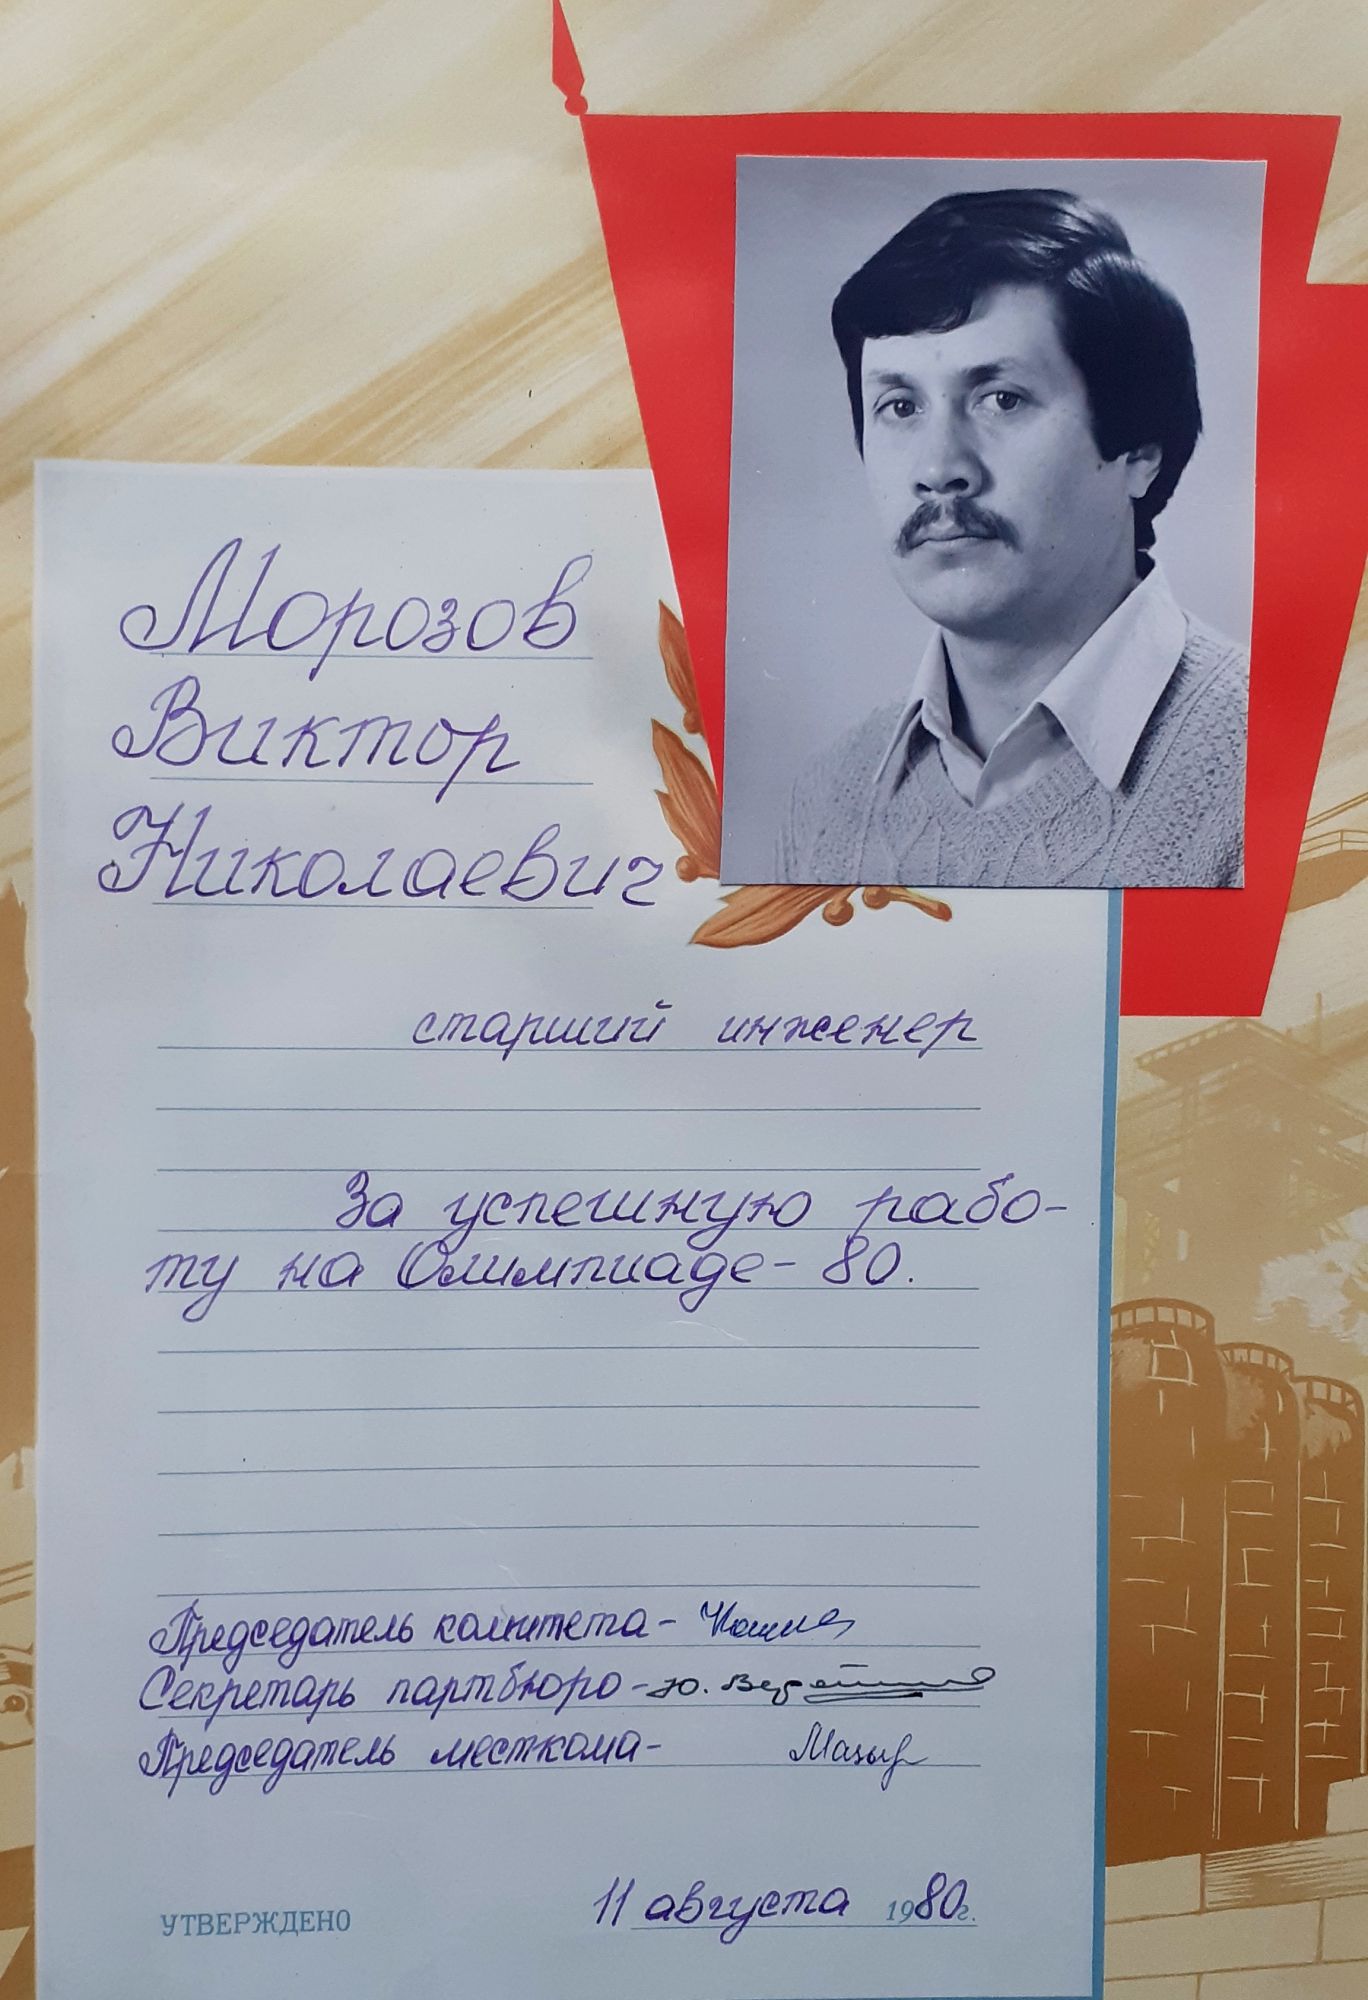 Морозов
Виктор
Николаевич
старший инженер
За успешную рабо-
ту на Олимпиаде-80.
Председатель комитета-
Секретарь партбюро- Ю.
Председатель месткома- Мазыр
УТВЕРЖДЕНО 11 августа 1980г.